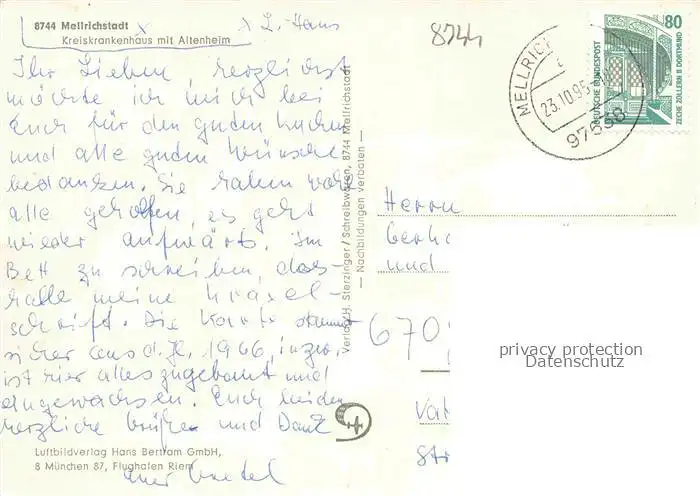 8744 Mellrichstadt
Kreiskrankenhaus mit Altenheim
z. Haus
8744
MELLRICH
23.10.95
97638
80
DEUTSCHE BUNDESPOST
ZECHE ZOLLERN II DORTMUND
Ihr Lieben, herzlichst
möchte ich mich bei
Euch für den guden Kuchen
und alle guden Wünsche
bedanken. Sie haben wohl
alle geholfen, es geht
wieder aufwärts. Im
Bett zu schreiben, das
halle meine Kraxel-
schrift. Die Karte stammt
sicher aus d. J. 1966, inzw.
ist hier alles zugebaut und
eingewachsen. Euch beiden
herzliche Grüße und Dank
Euer
Verlag H. Sterzinger / Schreibwaren, 8744 Mellrichstadt
— Nachbildungen verboten —
Herrn
Gerha
und
670
Vat
Str
Luftbildverlag Hans Bertram GmbH,
8 München 87, Flughafen Riem
privacy protection
Datenschutz